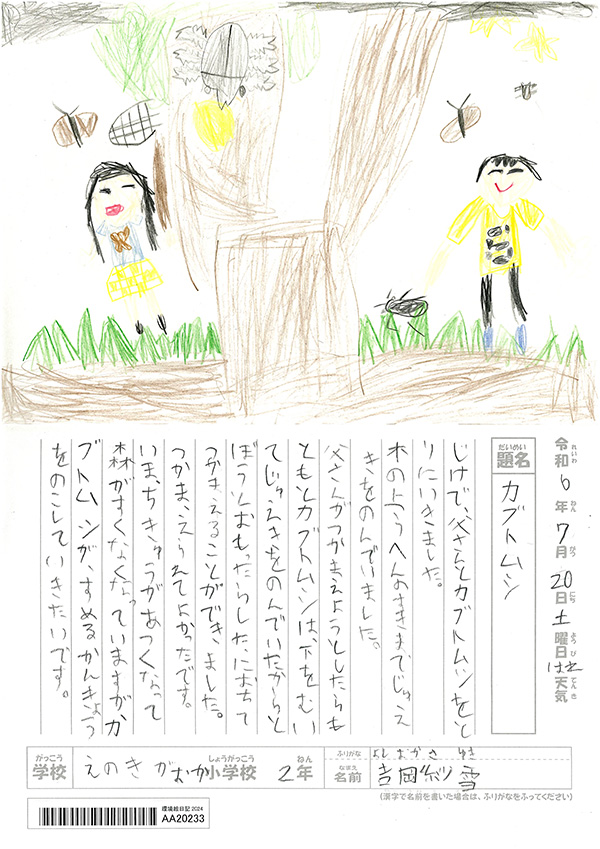 令和6年7月20日土曜日はれ天気
れいわ ねん がつ にち ようび てんき
だいめい
題名 カブトムシ
じけで、父さんとカブトムシをと
りにいきました。
木の上うへんのすきまでじゅえ
きをのんでいました。
父さんがつかまえようとしたらも
ともとカブトムシは、下をむい
てじゅえきをのんでいたからと
ぼうとおもったらした、におちて
つかまえることができました。
つかま、えられてよかったです。
いま、ちきゅうがあつくなって
森がすくなくなっていますがカ
ブトムシが、すめるかんきょう
をのこしていきたいです。
がっこう しょうがっこう ねん
学校 えのきがおか小学校 2年
ふりがな よしおか さゆき
なまえ
名前 吉岡紗雪
(漢字で名前を書いた場合は、ふりがなをふってください)
環境絵日記2024
AA20233